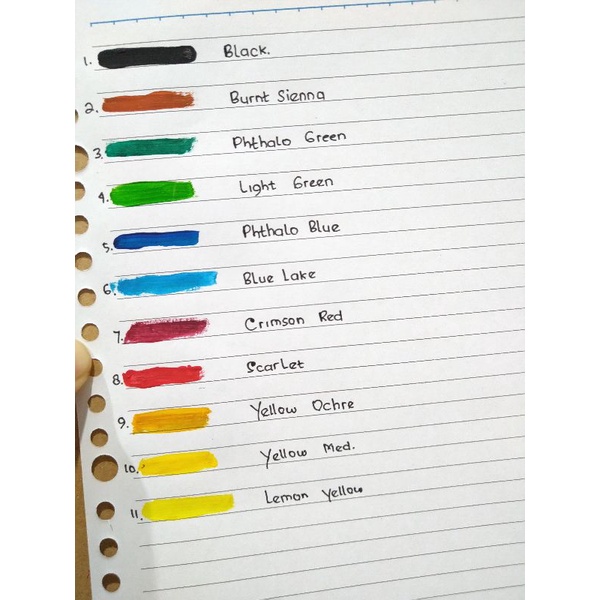 1. Black.
2. Burnt Sienna
3. Phthalo Green
4. Light Green
5. Phthalo Blue
6. Blue Lake
7. Crimson Red
8. Scarlet
9. Yellow Ochre
10. Yellow Med.
11. Lemon Yellow